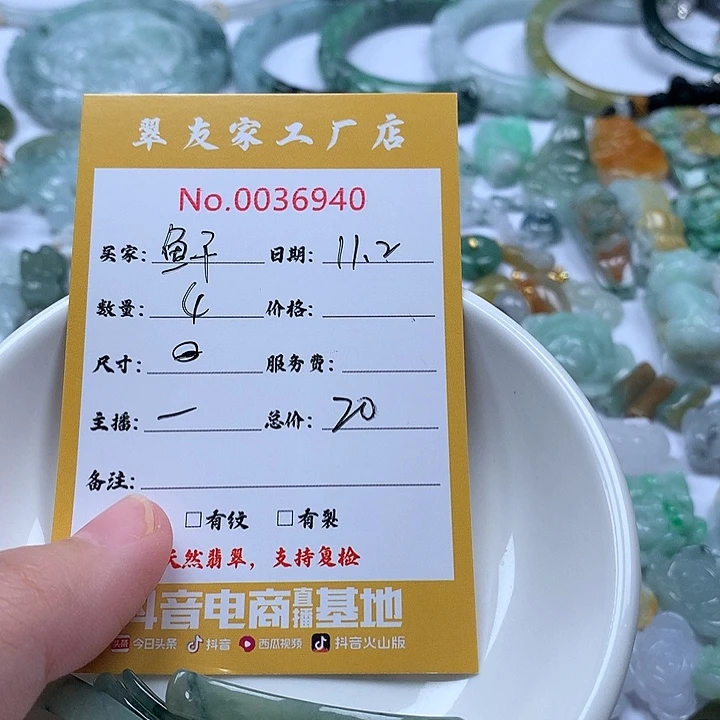 翠友家工厂店
No.0036940
买家：鱼子 日期：11.2
数量：4 价格：
尺寸： 服务费：
主播：一 总价：20
备注：
□有纹 □有裂
天然翡翠，支持复检
抖音电商直播基地
头条 今日头条 抖音 西瓜视频 抖音火山版